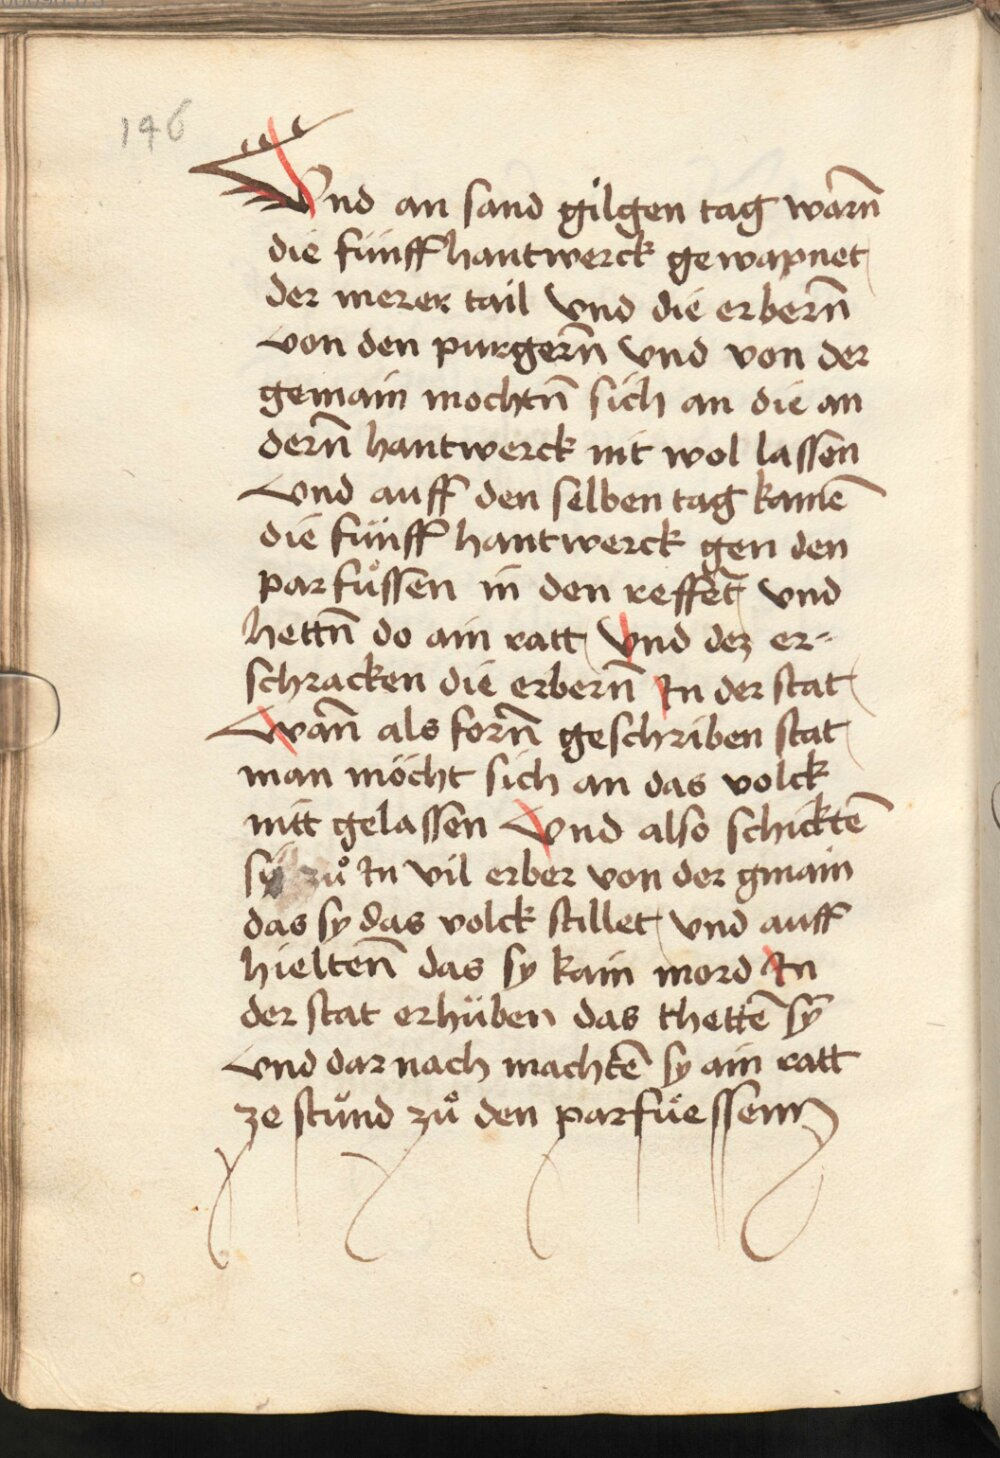 146
Vnd an sand gilgen tag warn̄
die fünff hantwerck gewapnet
der merer tail vnd die erbern̄
von den purgern̄ vnd von der
gemain mochtn̄ sich an die an
dern̄ hantwerck nit wol lassen
vnd auff den selben tag kamē
die fünff hantwerck gen den
parfůssen in den reffet̄ vnd
hettn̄ do ain ratt Vnd dez er=
schracken die erbern̄ In der stat
Wan̄ als forn̄ geschriben stat
man möcht sich an das volck
nitt gelassen Vnd also schicktē
sy zů In vil erber von der gmain
das sy das volck stillet vnd auff
hielten̄ das sy kain mord In
der stat erhüben das thettē sy
vnd dar nach machtē sy ain ratt
ze stůnd zů den parfüessenn